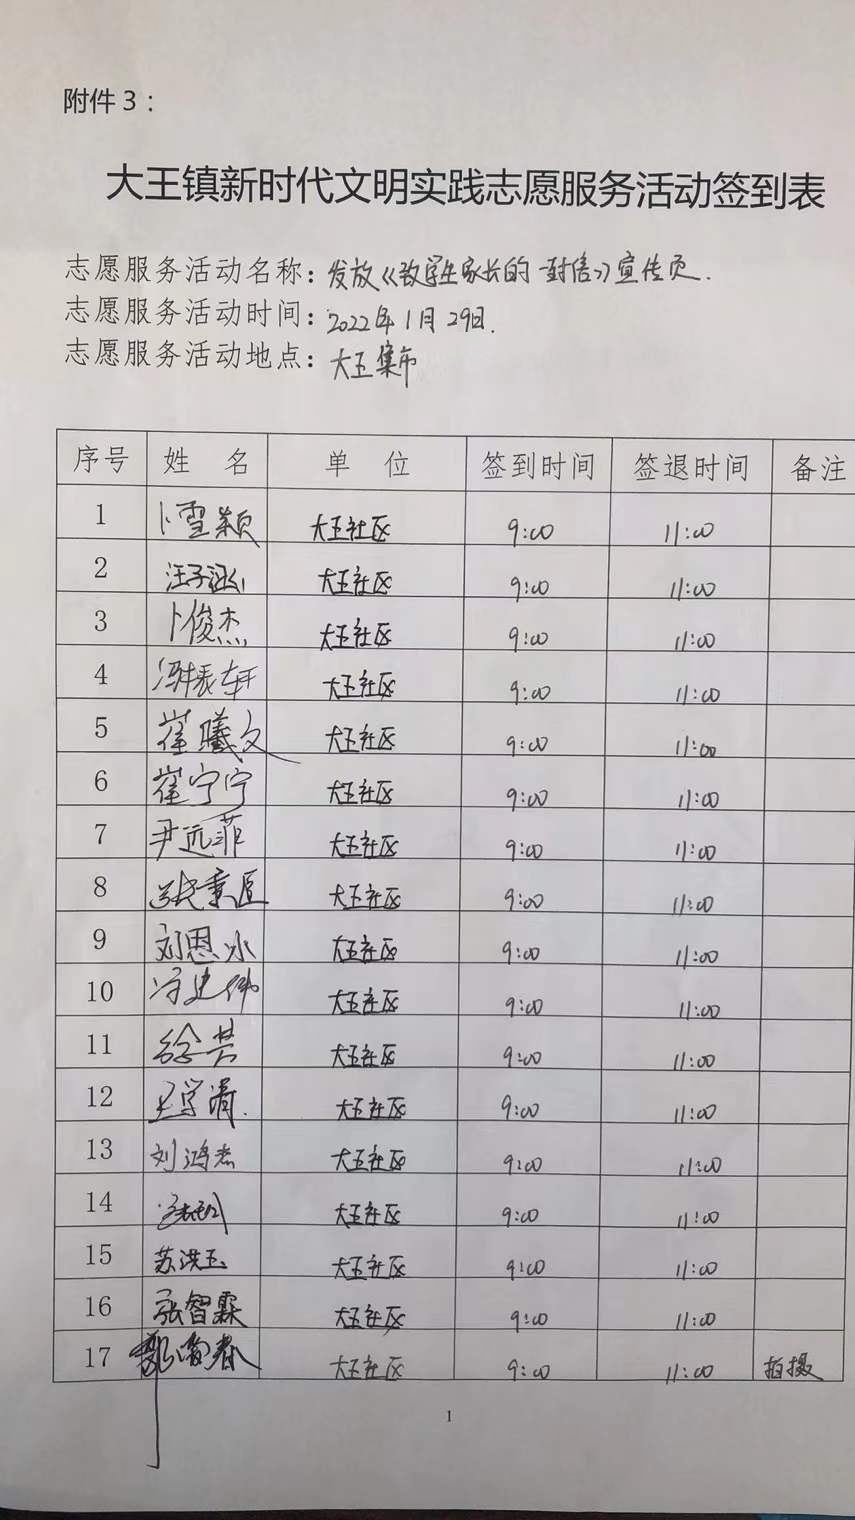 附件3：
大王镇新时代文明实践志愿服务活动签到表
志愿服务活动名称：发放《致学生家长的一封信》宣传页.
志愿服务活动时间：2022年1月29日.
志愿服务活动地点：大王集市
序号 姓 名 单 位 签到时间 签退时间 备注
1 卜雪颖 大王社区 9:00 11:00
2 汪子涵 大王社区 9:00 11:00
3 卜俊杰 大王社区 9:00 11:00
4 冯振轩 大王社区 9:00 11:00
5 崔曦文 大王社区 9:00 11:00
6 崔宁宁 大王社区 9:00 11:00
7 尹远菲 大王社区 9:00 11:00
8 大王社区 9:00 11:00
9 刘恩冰 大王社区 9:00 11:00
10 大王社区 9:00 11:00
11 徐芸 大王社区 9:00 11:00
12 大王社区 9:00 11:00
13 刘鸿杰 大王社区 9:00 11:00
14 大王社区 9:00 11:00
15 苏洪玉 大王社区 9:00 11:00
16 张智霖 大王社区 9:00 11:00
17 大王社区 9:00 11:00 拍摄
1